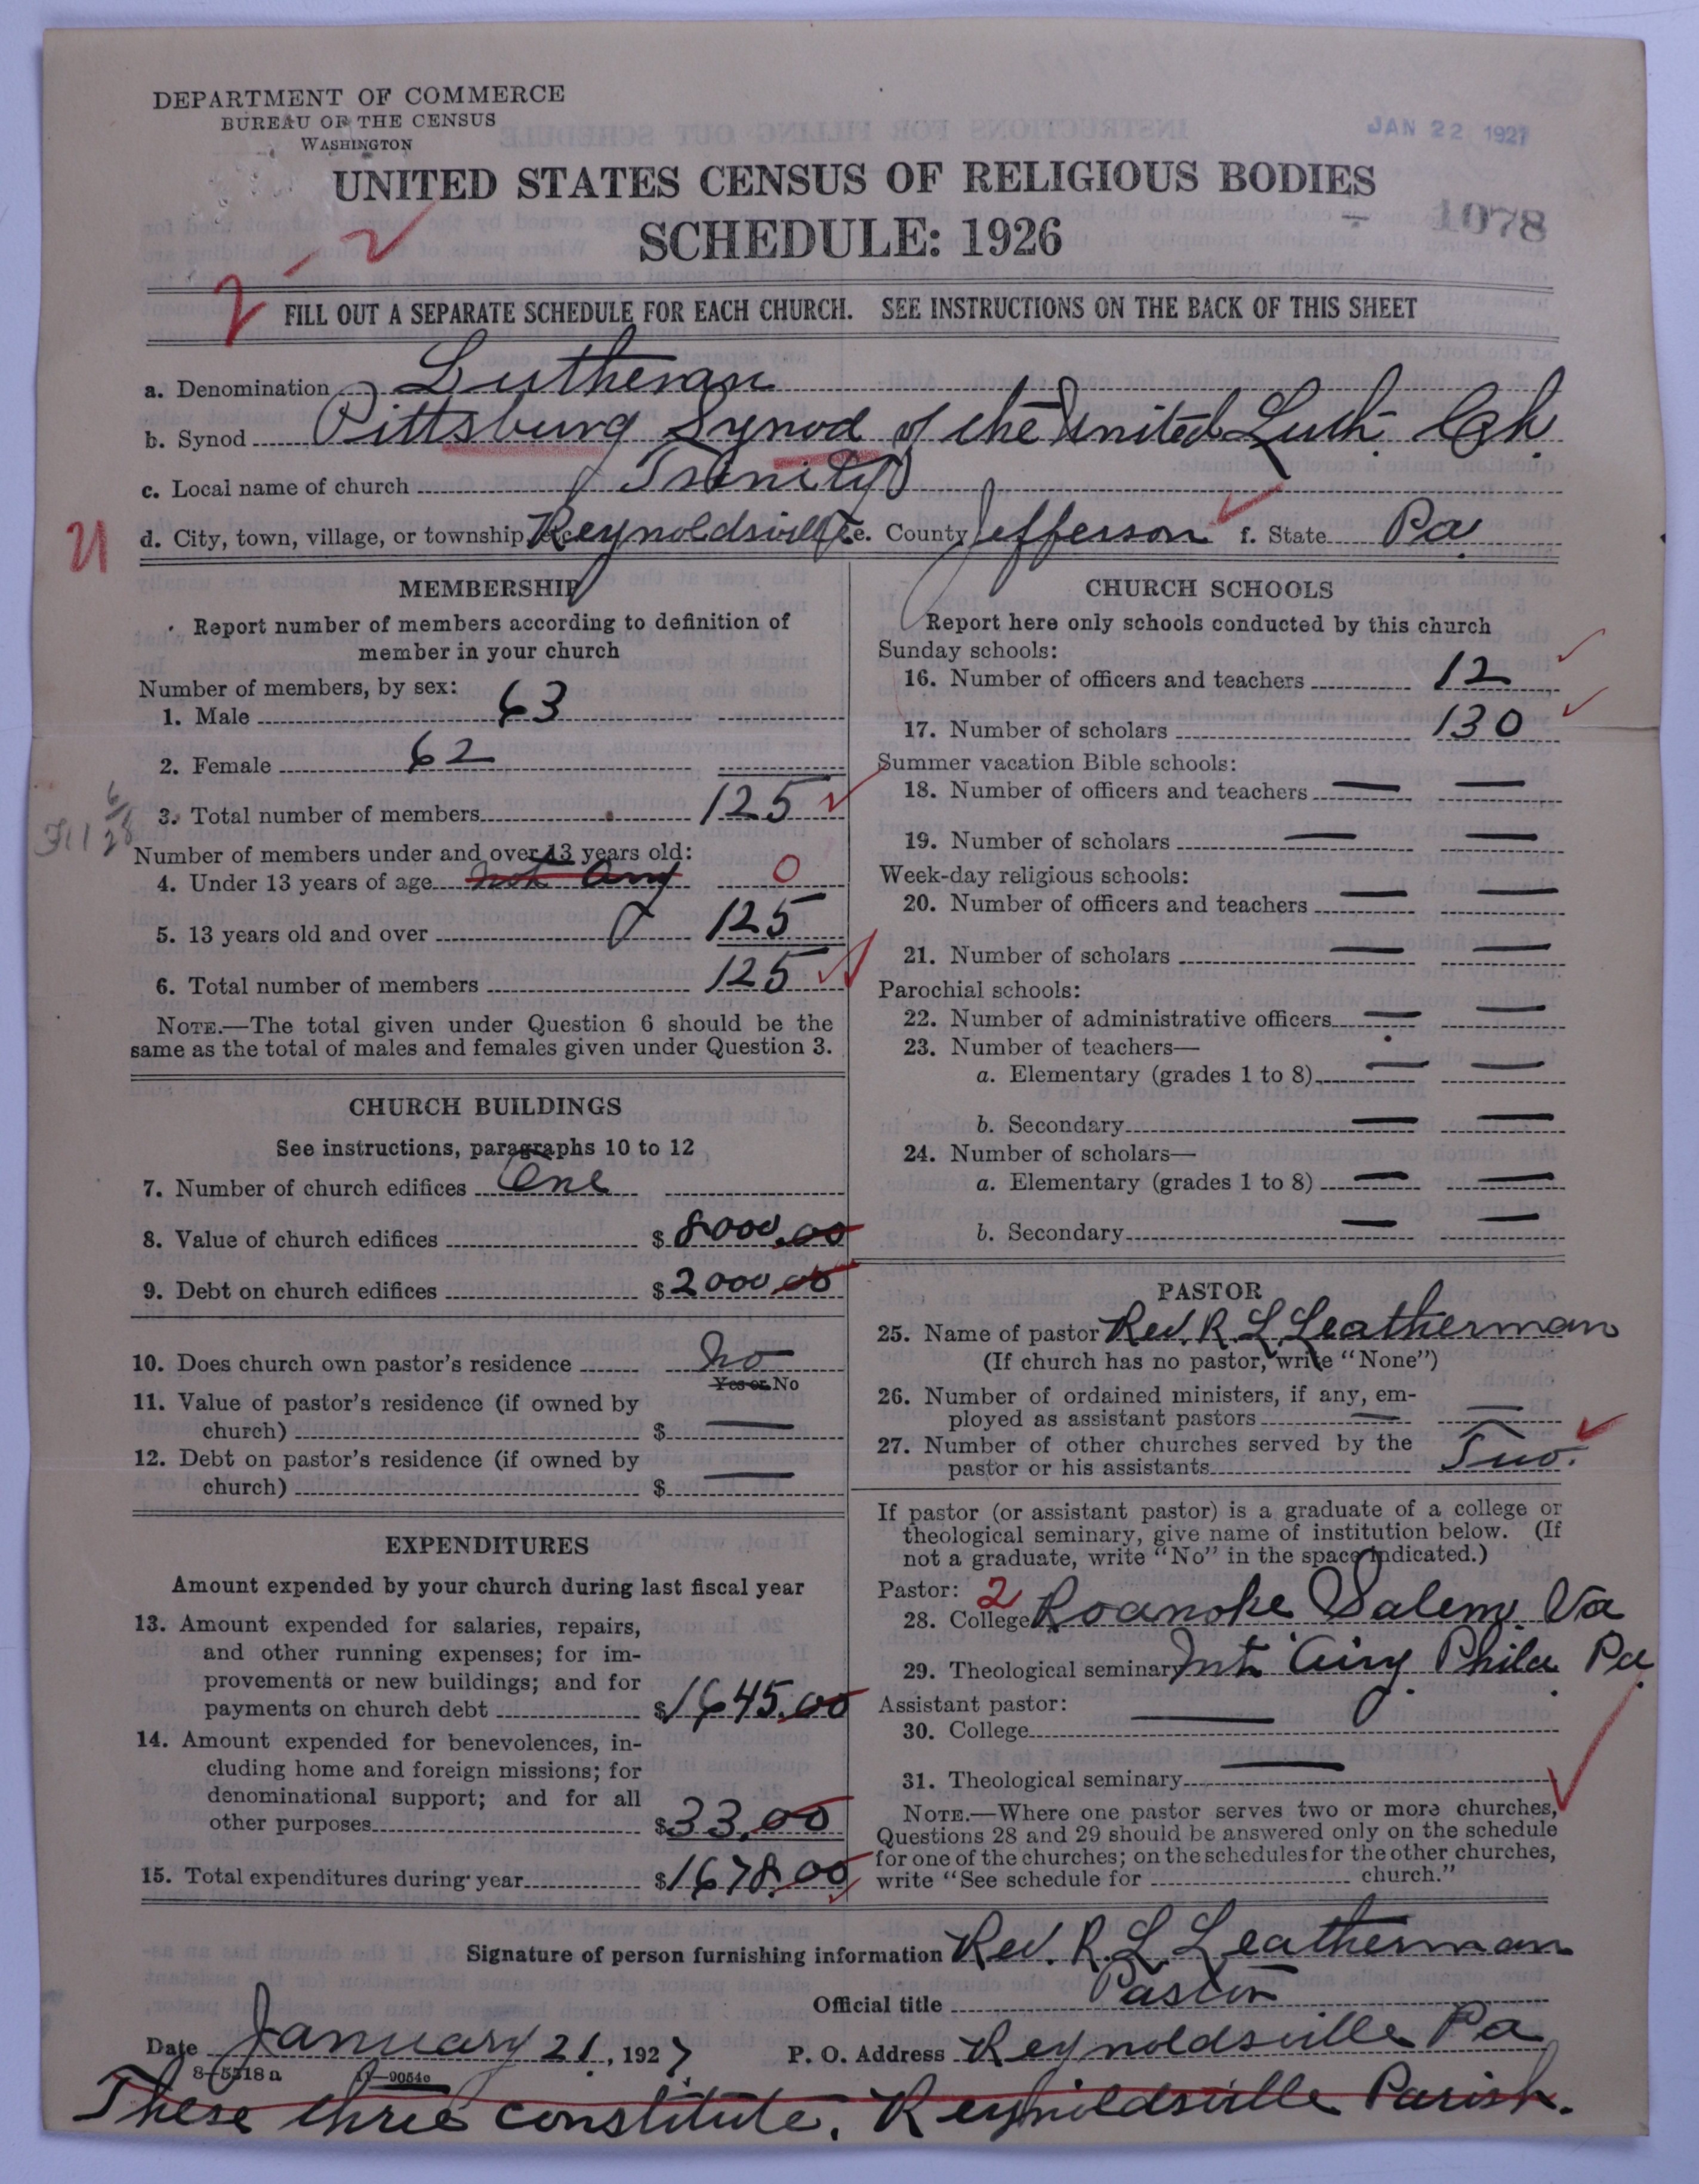 DEPARTMENT OF COMMERCE
BUREAU OF THE CENSUS
WASHINGTON
JAN 22 1927
UNITED STATES CENSUS OF RELIGIOUS BODIES
SCHEDULE: 1926
1078
2-2
FILL OUT A SEPARATE SCHEDULE FOR EACH CHURCH. SEE INSTRUCTIONS ON THE BACK OF THIS SHEET
a. Denomination Lutheran
b. Synod Pittsburg Synod of the United Luth. Ch.
c. Local name of church Trinity
d. City, town, village, or township, etc. Reynoldsville e. County Jefferson f. State Pa.
MEMBERSHIP
Report number of members according to definition of
member in your church
Number of members, by sex:
1. Male 63
2. Female 62
3. Total number of members 125
Number of members under and over 13 years old:
4. Under 13 years of age not any 0
5. 13 years old and over 125
6. Total number of members 125
NOTE.—The total given under Question 6 should be the
same as the total of males and females given under Question 3.
CHURCH BUILDINGS
See instructions, paragraphs 10 to 12
7. Number of church edifices One
8. Value of church edifices $8000.00
9. Debt on church edifices $2000.00
10. Does church own pastor's residence No
Yes or No
11. Value of pastor's residence (if owned by
church) $ —
12. Debt on pastor's residence (if owned by
church) $ —
EXPENDITURES
Amount expended by your church during last fiscal year
13. Amount expended for salaries, repairs,
and other running expenses; for im-
provements or new buildings; and for
payments on church debt $1645.00
14. Amount expended for benevolences, in-
cluding home and foreign missions; for
denominational support; and for all
other purposes $33.00
15. Total expenditures during year $1678.00
CHURCH SCHOOLS
Report here only schools conducted by this church
Sunday schools:
16. Number of officers and teachers 12
17. Number of scholars 130
Summer vacation Bible schools:
18. Number of officers and teachers — —
19. Number of scholars — —
Week-day religious schools:
20. Number of officers and teachers — —
21. Number of scholars — —
Parochial schools:
22. Number of administrative officers — —
23. Number of teachers—
a. Elementary (grades 1 to 8) — —
b. Secondary — —
24. Number of scholars—
a. Elementary (grades 1 to 8) — —
b. Secondary — —
PASTOR
25. Name of pastor Rev. R. L. Leatherman
(If church has no pastor, write "None")
26. Number of ordained ministers, if any, em-
ployed as assistant pastors — —
27. Number of other churches served by the
pastor or his assistants Two.
If pastor (or assistant pastor) is a graduate of a college or
theological seminary, give name of institution below. (If
not a graduate, write "No" in the space indicated.)
Pastor: 2
28. College Roanoke Salem Va
29. Theological seminary Mt. Airy Phila Pa.
Assistant pastor:
30. College —
31. Theological seminary —
NOTE.—Where one pastor serves two or more churches,
Questions 28 and 29 should be answered only on the schedule
for one of the churches; on the schedules for the other churches,
write "See schedule for church."
Signature of person furnishing information Rev. R. L. Leatherman
Official title Pastor
Date January 21, 1927 P. O. Address Reynoldsville Pa
8—5318 a 11—9054a
These three constitute. Reynoldsville Parish.